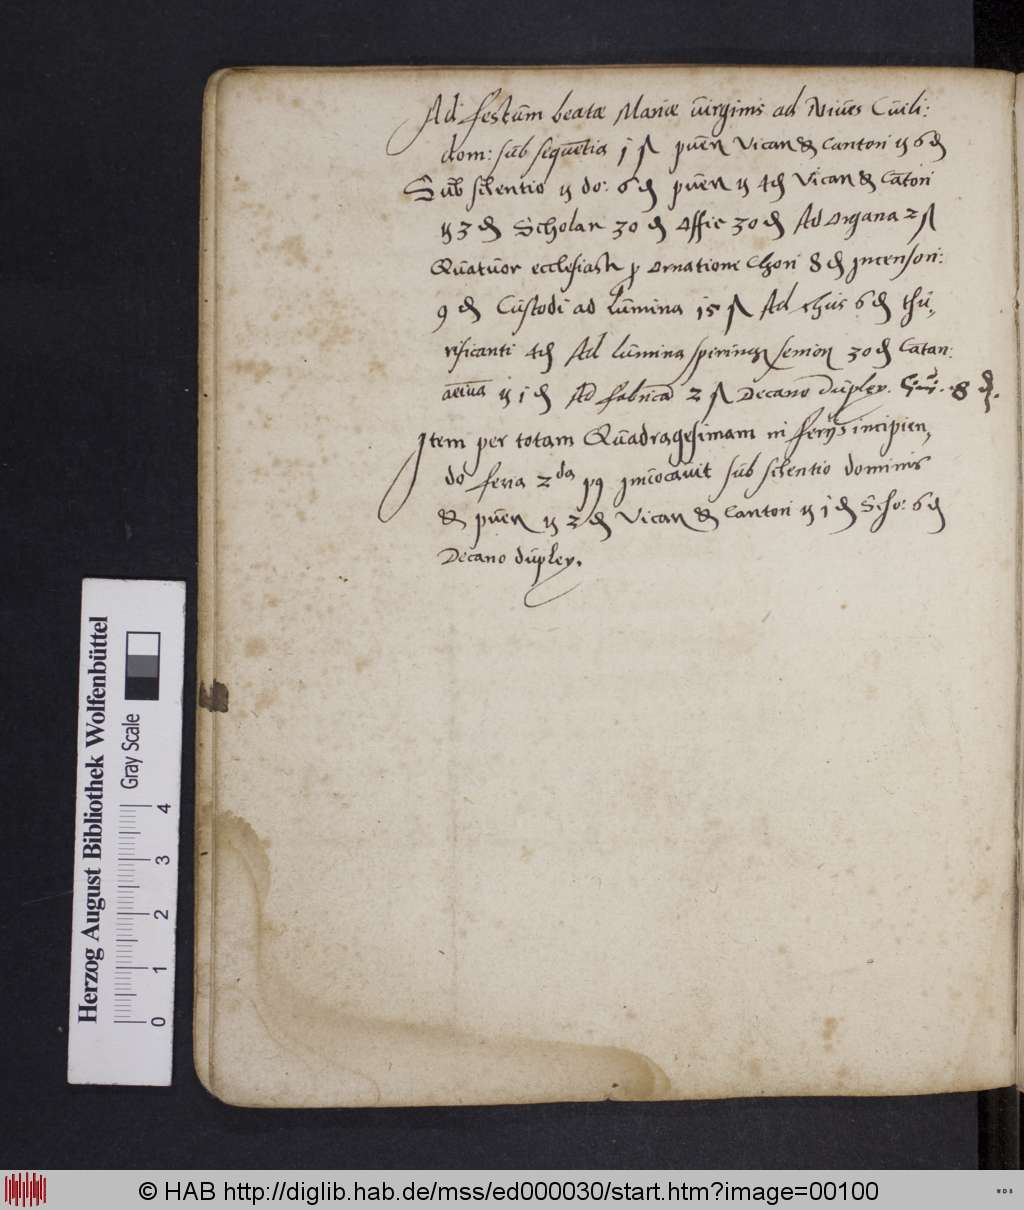 Ad festum beatæ Mariæ virginis ad Nives Cuili:
dom: sub sequentia 1 ß pueri Vicar & Cantori ij 6 ₰
Sub silentio ij do: 6 ₰ pueri ij 4 ₰ Vicar & Cantori
ij 3 ₰ Scholar 30 ₰ Offic 30 ₰ Ad Organa 2 ß
Quatuor ecclesiast pro ornatione Chori 8 ₰ incensori:
9 ₰ Custodi ad Lumina 15 ß Ad thus 6 ₰ thu,,
rificanti 4 ₰ Ad lumina senior 30 ₰
ij 1 ₰ Ad fabrica 2 ß Decano duplex. 8 ₰.
Item per totam Quadragesimam in ferijs incipien,,
do feria 2da post invocavit sub silentio dominis
& pueri ij 2 ₰ Vicar & Cantori ij 1 ₰ Scho: 6 ₰
Decano duplex.
Herzog August Bibliothek Wolfenbüttel
Gray Scale
0 1 2 3 4
© HAB http://diglib.hab.de/mss/ed000030/start.htm?image=00100